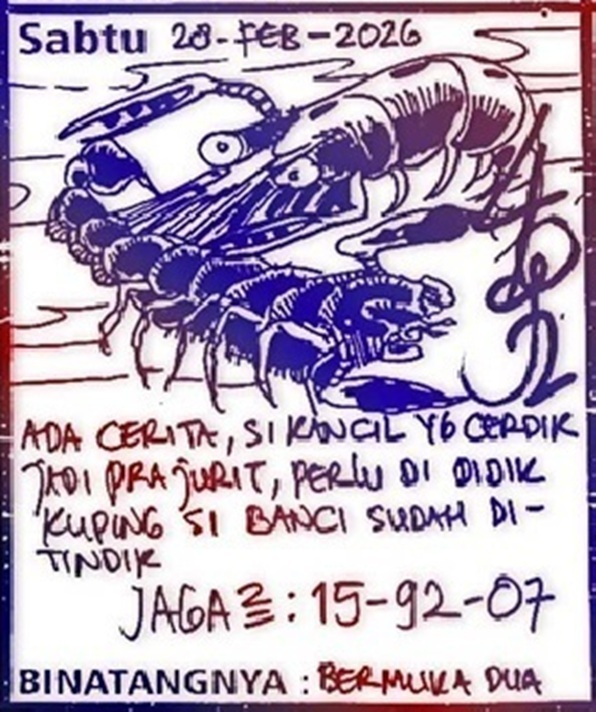 Sabtu 28-FEB-2026
ADA CERITA, SI KANCIL YG CERDIK
JADI PRAJURIT, PERLU DI DIDIK
KUPING SI BANCI SUDAH DI-
TINDIK
JAGA2 : 15-92-07
BINATANGNYA : BERMUKA DUA